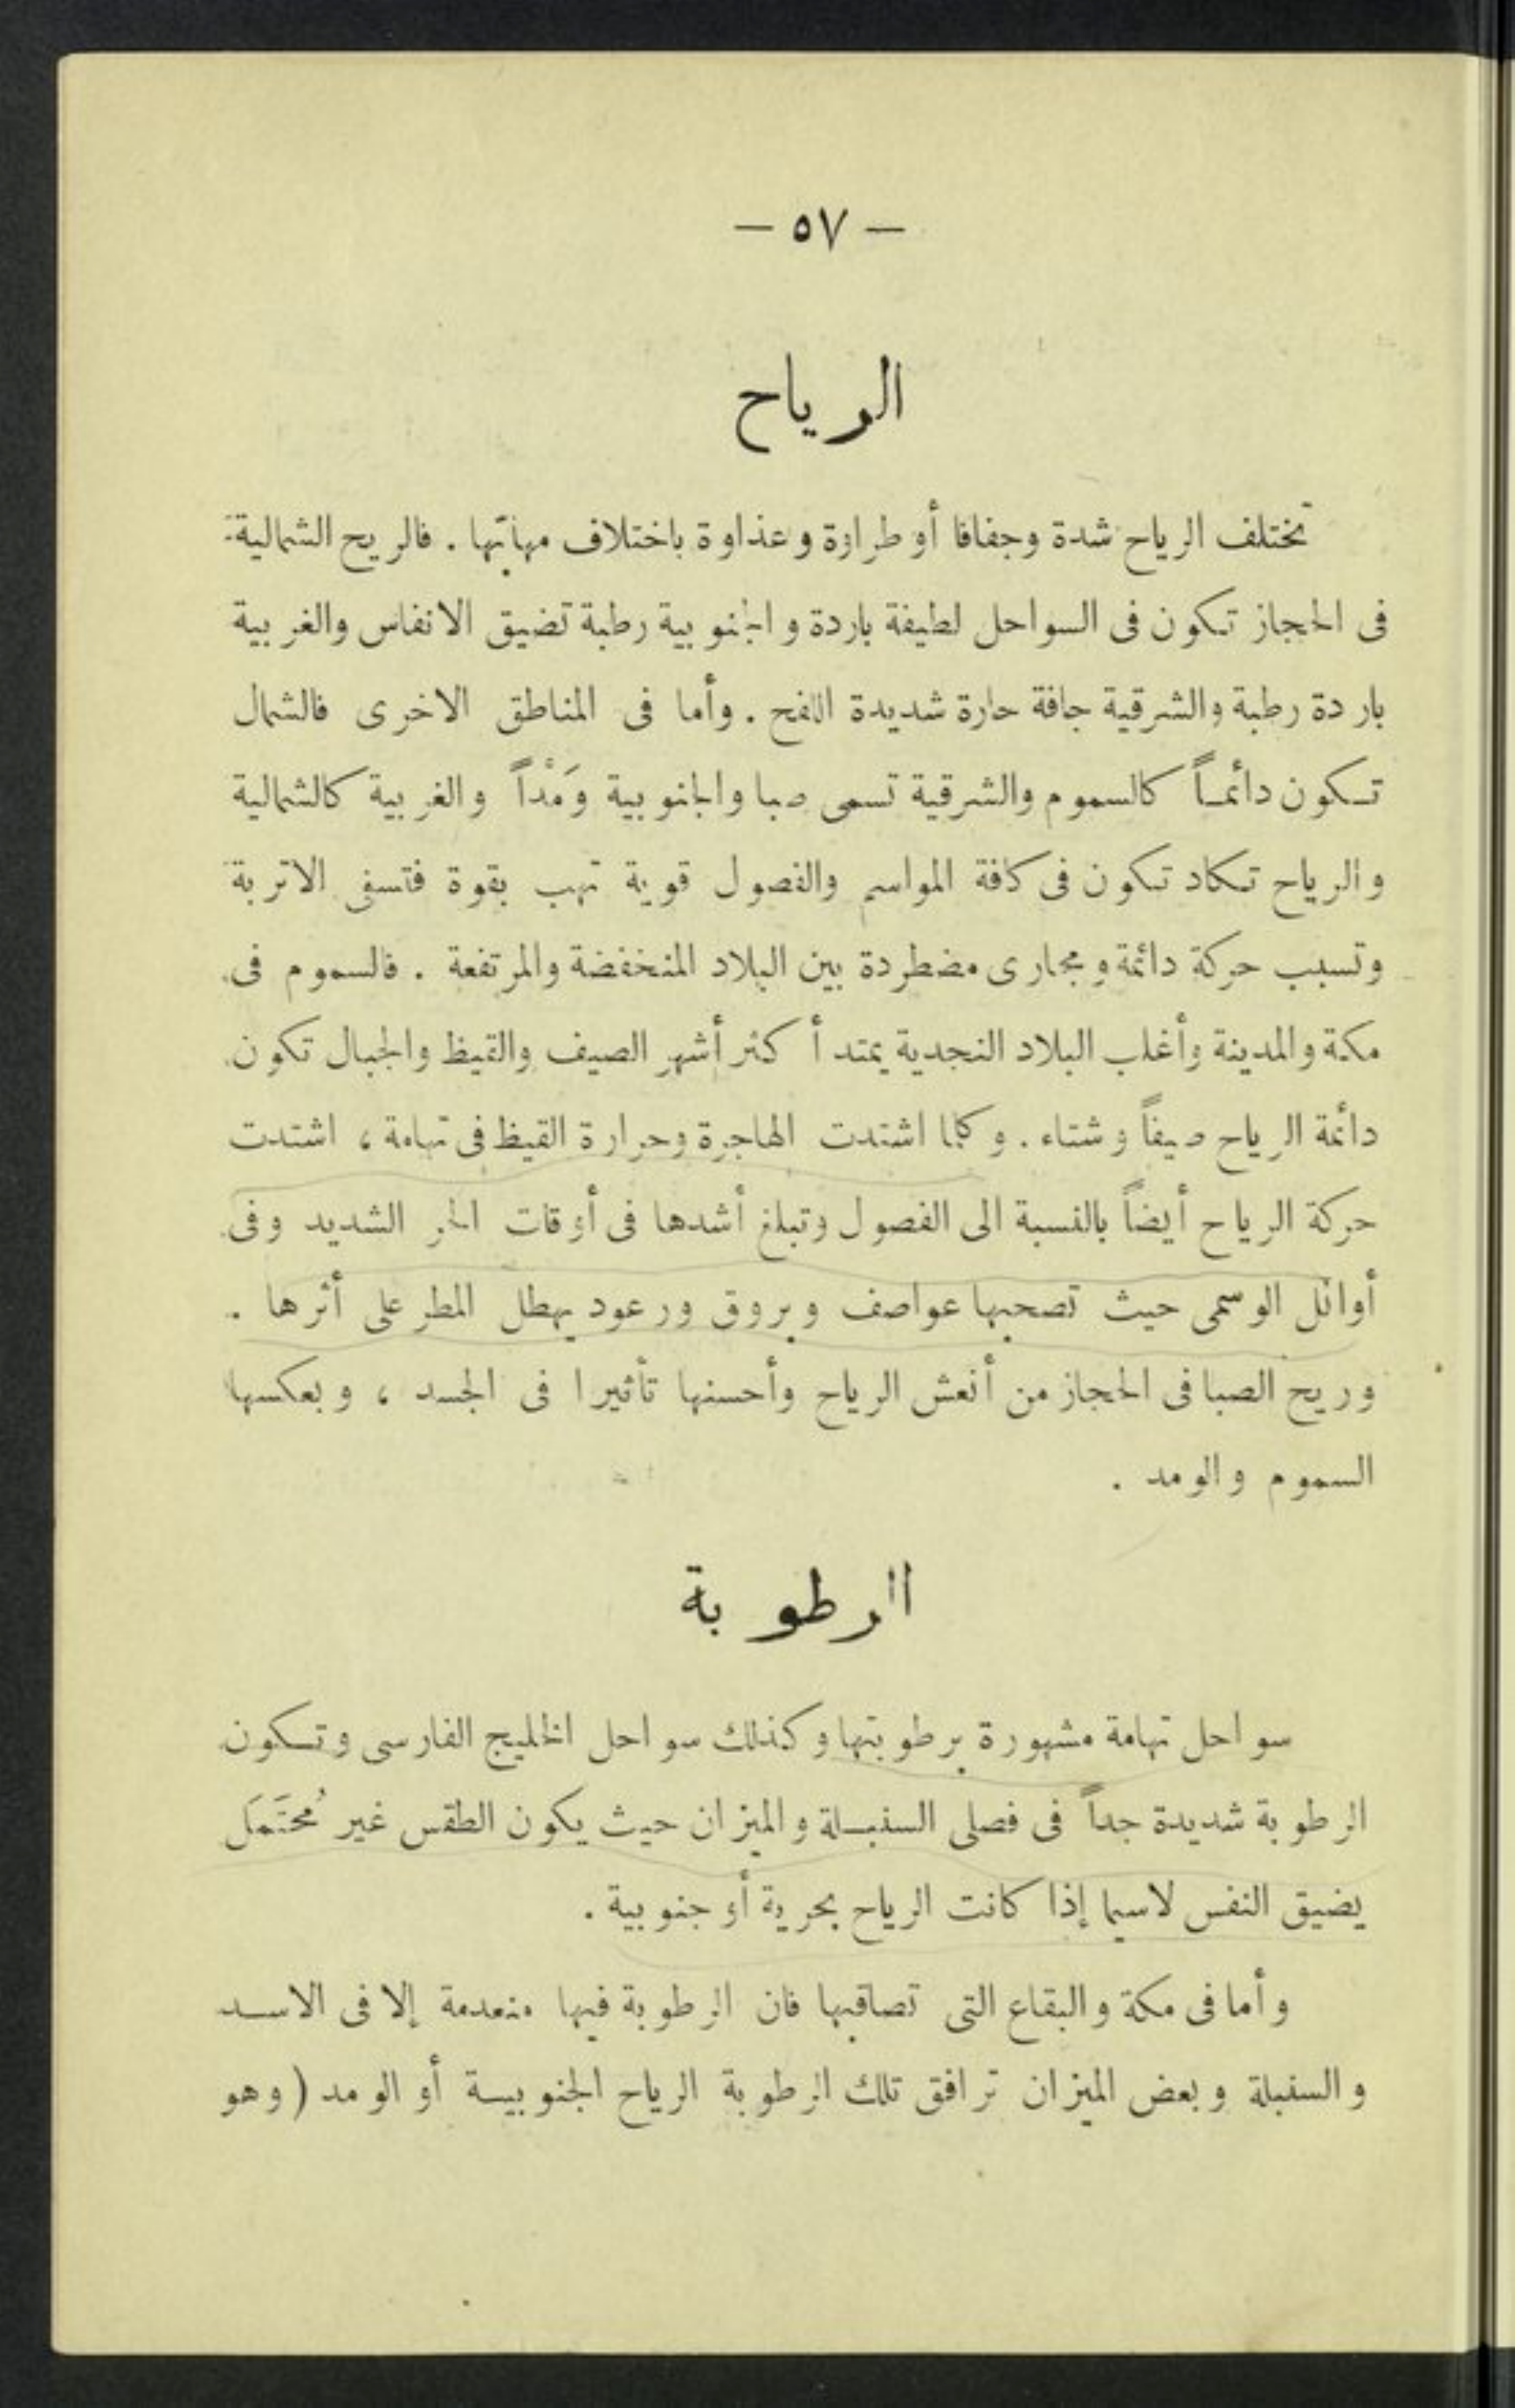 — ٥٧ —
الرياح
تختلف الرياح شدة وجفافا أو طراوة وعذاوة باختلاف مهابّها . فالريح الشمالية
فى الحجاز تكون فى السواحل لطيفة باردة والجنوبية رطبة تضيق الانفاس والغربية
باردة رطبة والشرقية جافة حارة شديدة اللفح . وأما فى المناطق الاخرى فالشمال
تكون دائماً كالسموم والشرقية تسمى صبا والجنوبية وَمْداً والغربية كالشمالية
والرياح تكاد تكون فى كافة المواسم والفصول قوية تهب بقوة فتسفى الاتربة
وتسبب حركة دائمة ومجارى مضطردة بين البلاد المنخفضة والمرتفعة . فالسموم فى
مكة والمدينة وأغلب البلاد النجدية يمتد أكثر أشهر الصيف والقيظ والجبال تكون
دائمة الرياح صيفاً وشتاء . وكلما اشتدت الهاجرة وحرارة القيظ فى تهامة ، اشتدت
حركة الرياح أيضاً بالنسبة الى الفصول وتبلغ أشدها فى أوقات الحر الشديد وفى
أوائل الوسمى حيث تصحبها عواصف وبروق ورعود يهطل المطر على أثرها .
وريح الصبا فى الحجاز من أنعش الرياح وأحسنها تأثيرا فى الجسد ، وبعكسها
السموم والومد .
الرطوبة
سواحل تهامة مشهورة برطوبتها وكذلك سواحل الخليج الفارسى وتكون
الرطوبة شديدة جداً فى فصلى السنبلة والميزان حيث يكون الطقس غير مُحتَمَل
يضيق النفس لاسيما إذا كانت الرياح بحرية أو جنوبية .
وأما فى مكة والبقاع التى تصاقبها فان الرطوبة فيها منعدمة إلا فى الاسد
والسنبلة وبعض الميزان ترافق تلك الرطوبة الرياح الجنوبية أو الومد ( وهو